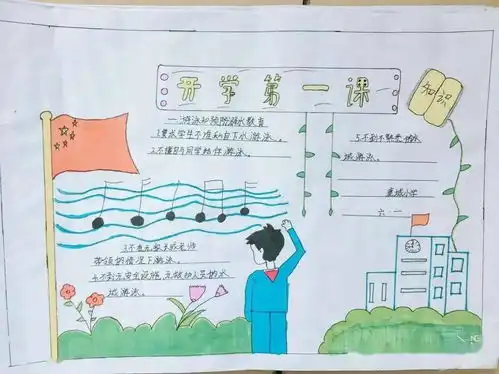 开学第一课
知识
一、游泳和预防溺水教育
1.要求学生不准私自下水游泳。
2.不擅自与同学结伴游泳。
3.不在无家长或老师
带领的情况下游泳。
4.不到无安全设施、无救助人员的水
域游泳。
5.不到不熟悉的水
域游泳。
小学
六一